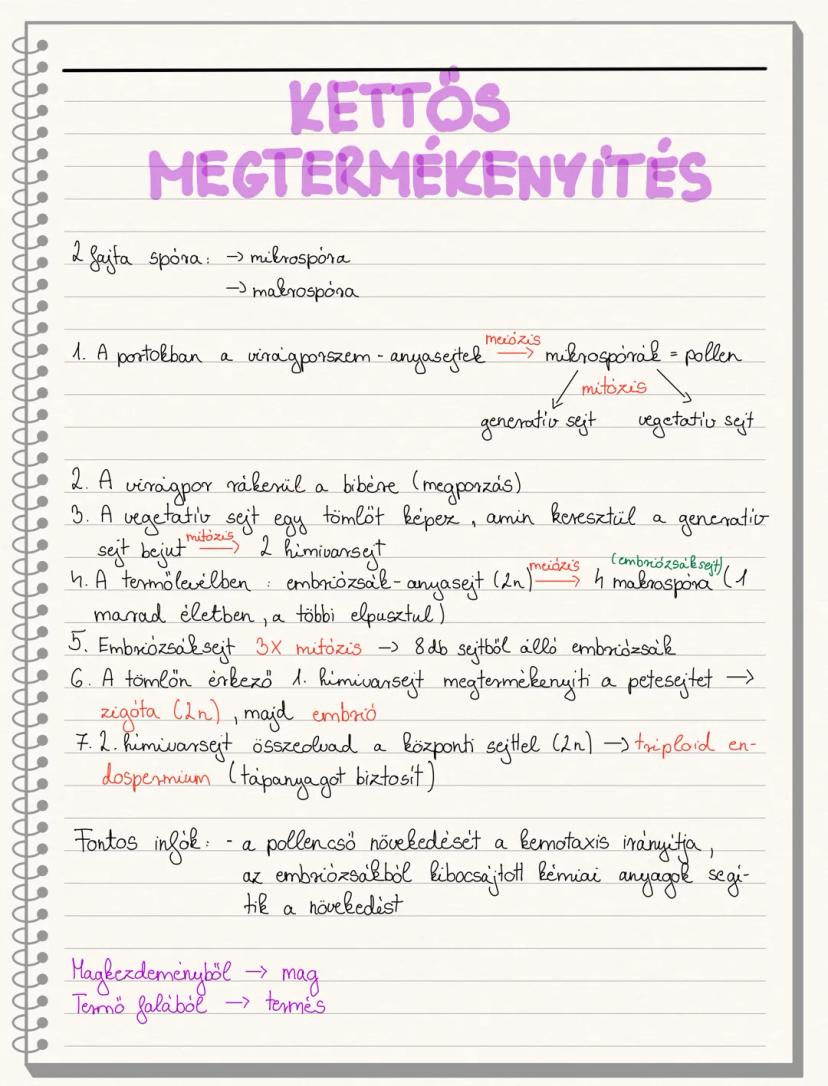 KETTŐS
MEGTERMÉKENYÍTÉS
2 fajta spóra: → mikrospóra
→ makrospóra
1. A portokban a virágporszem-anyasejtek meiózis → mikrospórák = pollen
mitózis
generatív sejt vegetatív sejt
2. A virágpor rákerül a bibére (megporzás)
3. A vegetatív sejt egy tömlőt képez, amin keresztül a generatív
sejt bejut mitózis → 2 hímivarsejt
4. A termőlevélben: embriózsák-anyasejt (2n) meiózis → 4 makrospóra (embriózsáksejt) (1
marad életben, a többi elpusztul)
5. Embriózsáksejt 3X mitózis → 8 db sejtből álló embriózsák
6. A tömlőn érkező 1. hímivarsejt megtermékenyíti a petesejtet →
zigóta (2n), majd embrió
7. 2. hímivarsejt összeolvad a központi sejttel (2n) → triploid en-
dospermium (tápanyagot biztosít)
Fontos infók: - a pollencső növekedését a kemotaxis irányítja,
az embriózsákból kibocsájtott kémiai anyagok segí-
tik a növekedést
Magkezdeményből → mag
Termő falából → termés